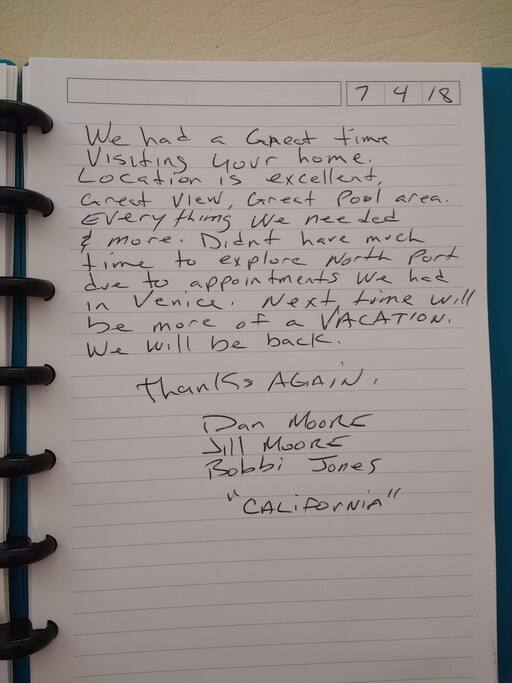 7 4 18
We had a Great time
Visiting your home.
Location is excellent,
Great View, Great Pool area.
Everything we needed
& more. Didnt have much
time to explore North Port
due to appointments we had
in Venice. Next time will
be more of a VACATION.
We will be back.
Thanks AGAIN.
Dan MOORE
Jill MOORE
Bobbi Jones
"CALIFORNIA"